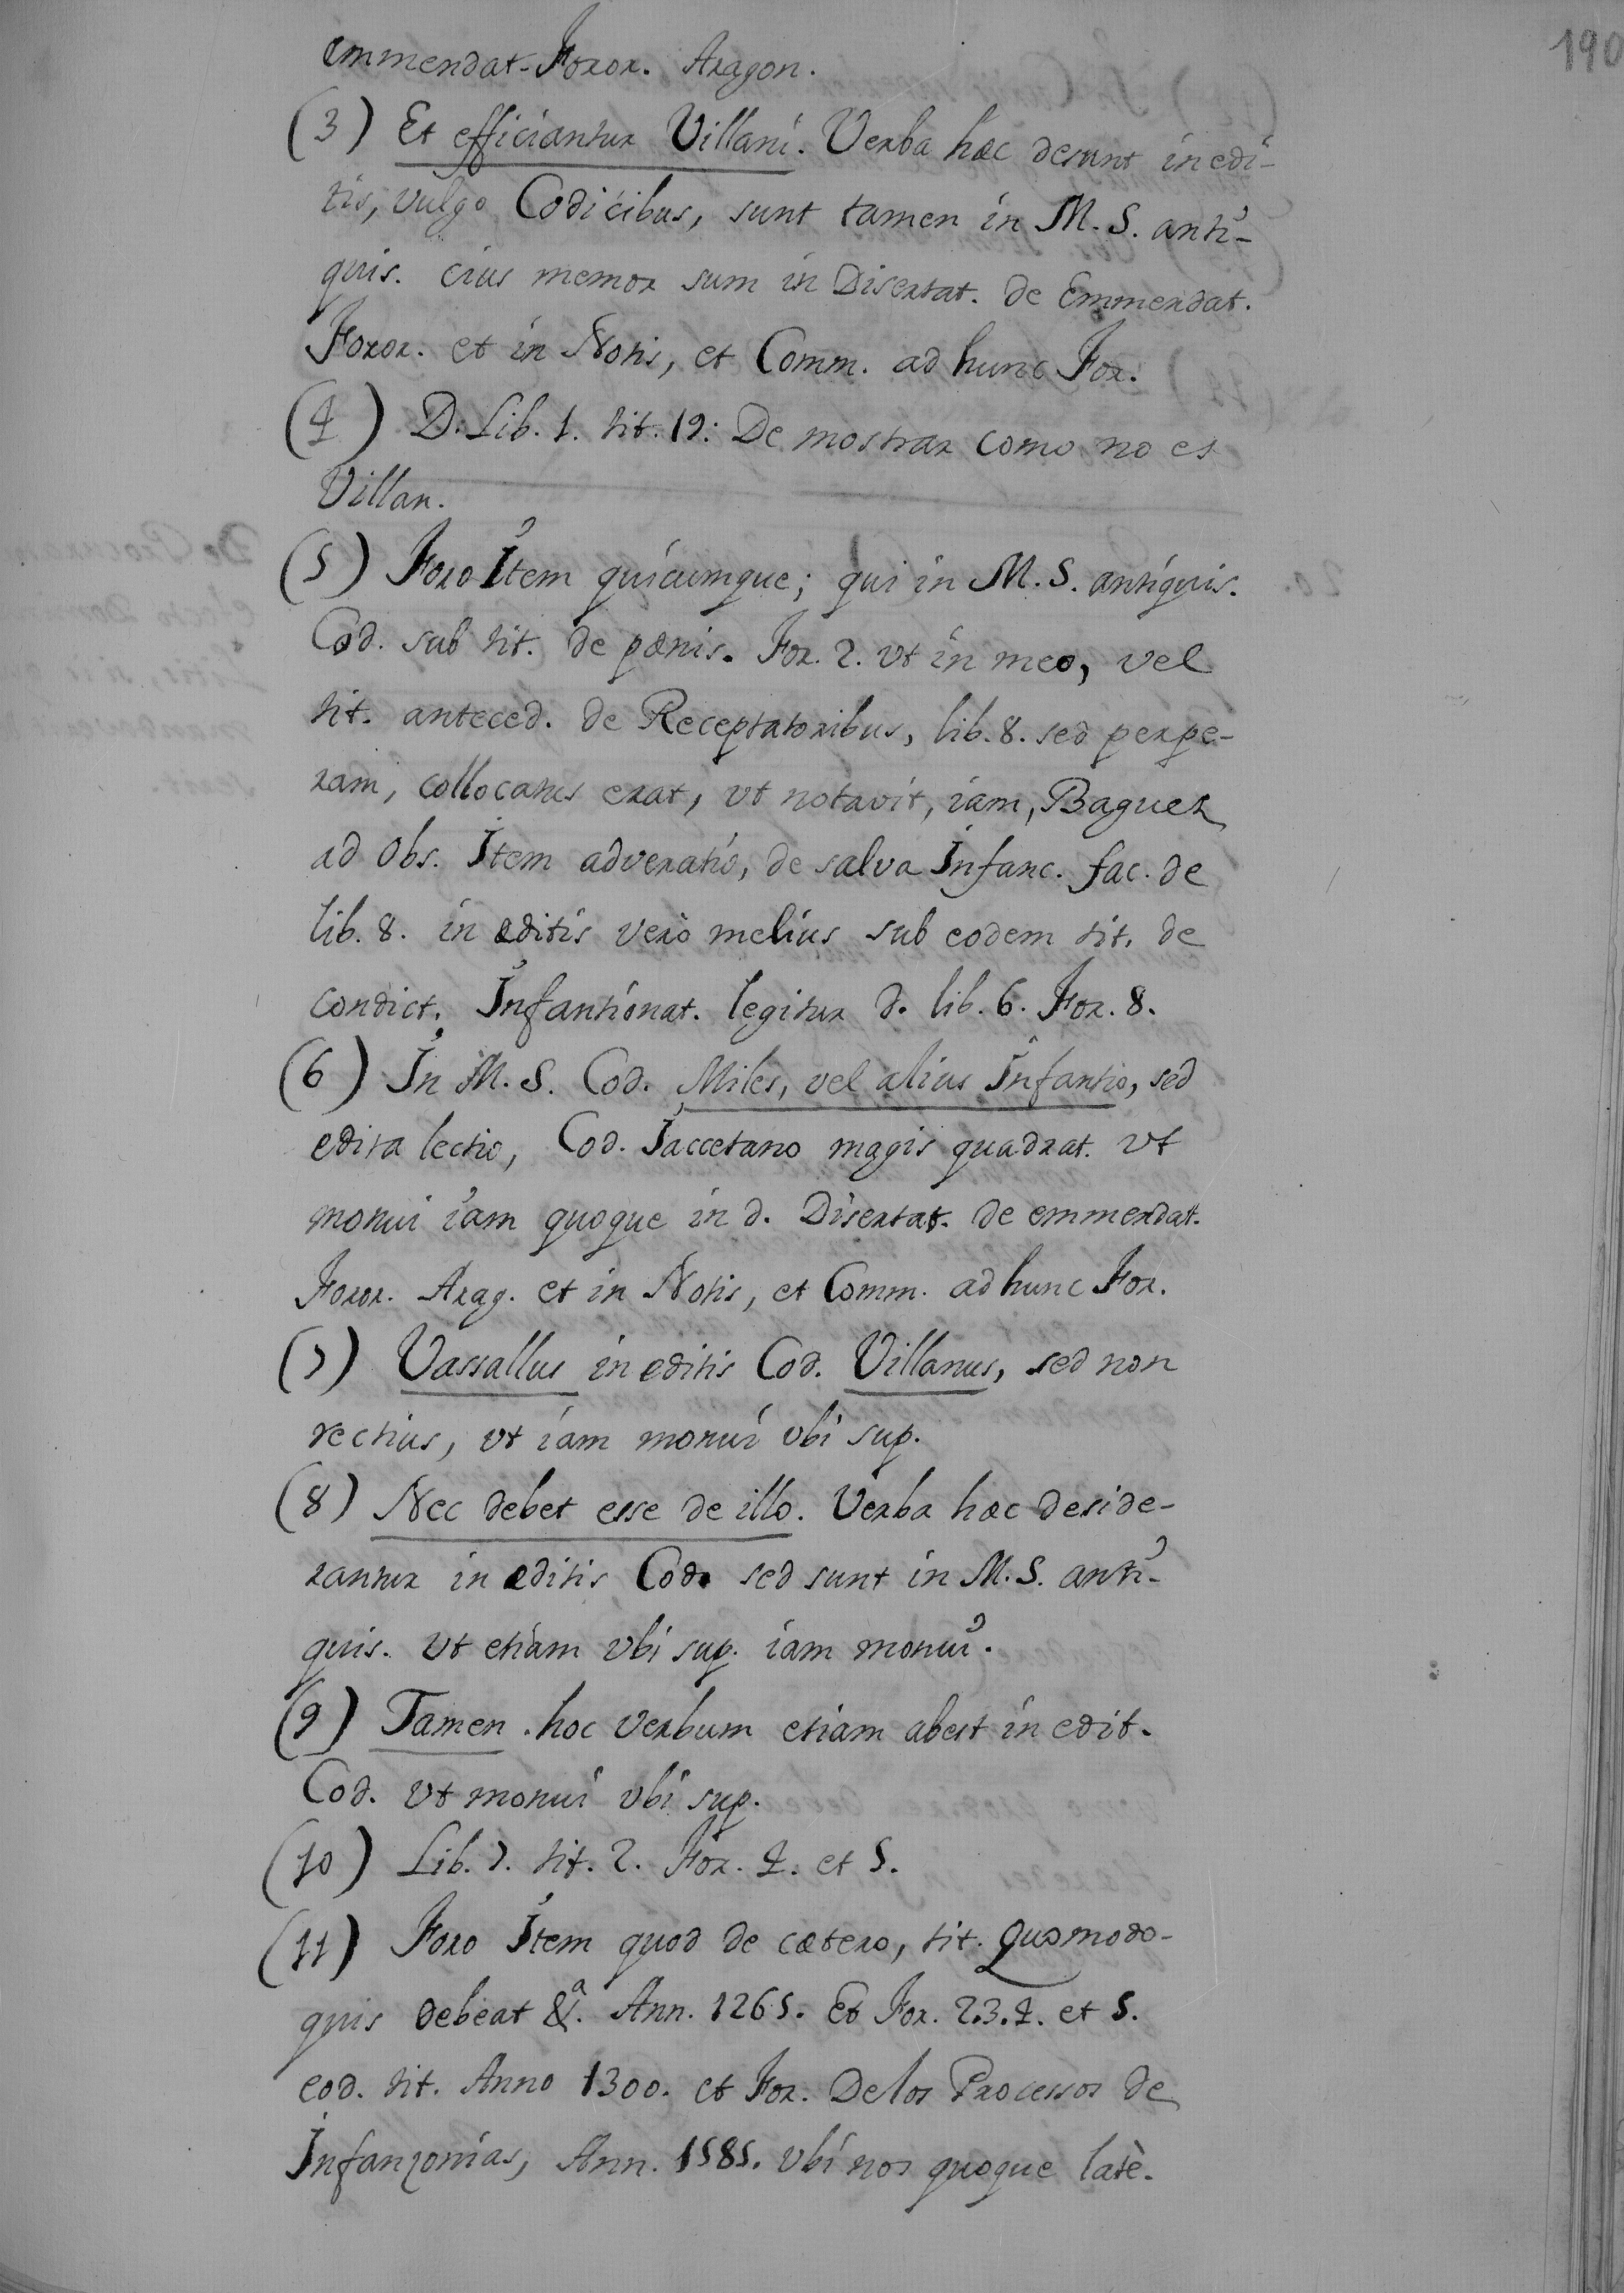 190
emmendat. Foror. Aragon.
(3) Et efficiantur Villani. Verba hæc desunt in edi-
tis, vulgo Codicibus, sunt tamen in M.S. anti-
quis. cius memor sum in Disertat. de Emmendat.
Foror. et in Notis, et Comm. ad hunc For.
(4) D. Lib. 1. tit. 19: De mostrar como no es
Villan.
(5) Foro Item quicumque; qui in M.S. antiquis.
Cod. sub tit. de pœnis. For. 2. vt in meo, vel
tit. anteced. de Receptatoribus, lib. 8. sed perpe-
ram, collocatus erat, vt notavit, iam, Baguer
ad Obs. Item adveratio, de salva Infanc. fac. de
lib. 8. in editis verò melius sub eodem tit. de
condict. Infantionat. legitur d. lib. 6. For. 8.
(6) In M.S. Cod. Miles, vel alius Infantio, sed
edita lectio, Cod. Jaccetano magis quadrat. vt
monui iam quoque in d. Disertat. de emmendat.
Foror. Arag. et in Notis, et Comm. ad hunc For.
(7) Vassallus in editis Cod. Villanus, sed non
rectius, vt iam monui vbi sup.
(8) Nec debet esse de illo. Verba hæc deside-
rantur in editis Cod. sed sunt in M.S. anti-
quis. vt etiam vbi sup. iam monui.
(9) Tamen. hoc verbum etiam abest in edit.
Cod. vt monui vbi sup.
(10) Lib. 7. tit. 2. For. 4. et 5.
(11) Foro Item quod de cætero, tit. Quomodo-
quis debeat &ª. Ann. 1265. Et For. 2.3.4. et 5.
eod. tit. Anno 1300. et For. De los Processos de
Infanzonias, Ann. 1585. vbi nos quoque latè.